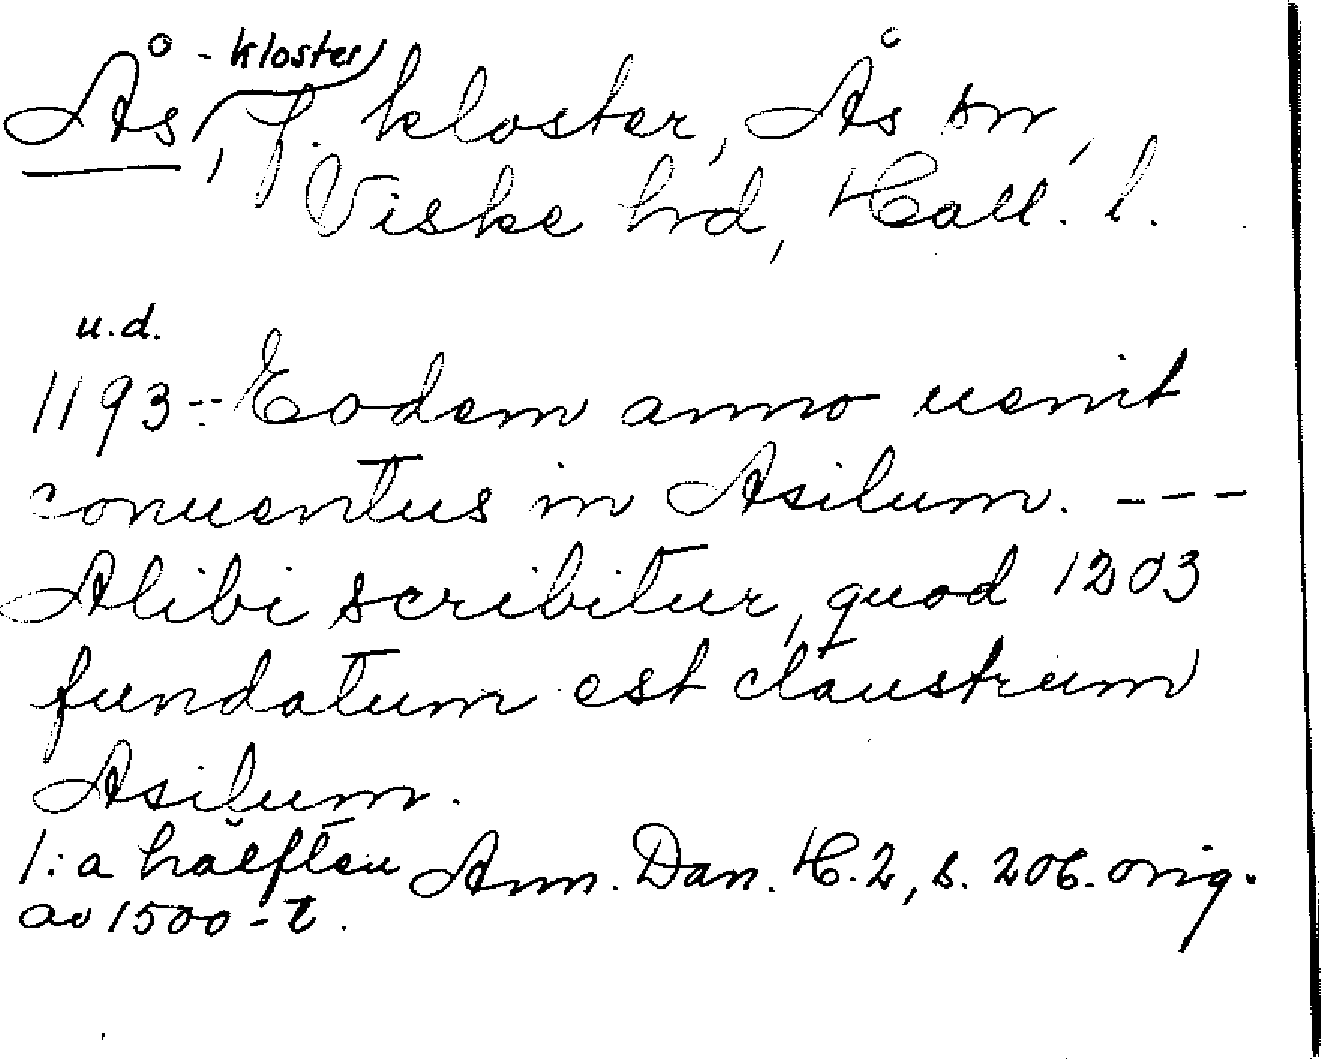 Ås, -kloster f. kloster, Ås sn,
Viske hd, Hall. l.
u.d.
1193 -- Eodem anno uenit
conuentus in Asilum. ---
Alibi scribitur, quod 1203
fundatum est claustrum
Asilum.
1:a hälften Ann. Dan. H. 2, s. 206. orig.
av 1500-t.